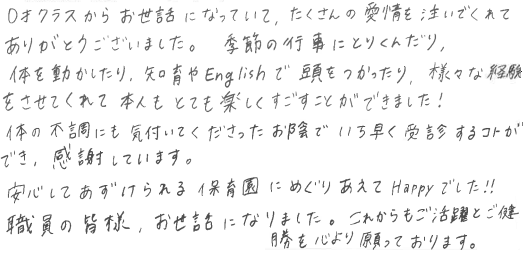 0才クラスからお世話になっていて、たくさんの愛情を注いでくれて
ありがとうございました。 季節の行事にとりくんだり、
体を動かしたり、知育やEnglishで頭をつかったり、様々な経験
をさせてくれて本人もとても楽しくすごすことができました!
体の不調にも気付いてくださったお陰でいち早く受診するコトが
でき、感謝しています。
安心してあずけられる保育園にめぐりあえてHappyでした!!
職員の皆様、お世話になりました。これからもご活躍とご健
勝を心より願っております。